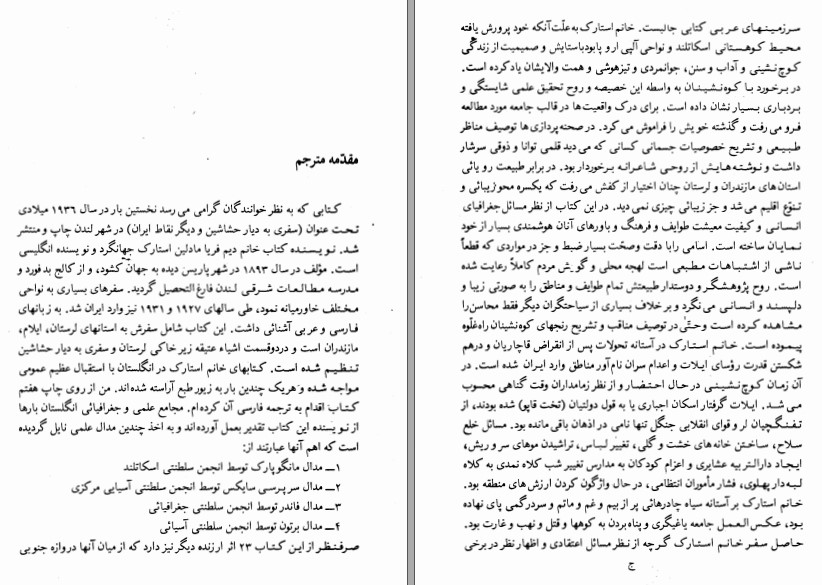 مقدّمه مترجم
کتابی که به نظر خوانندگان گرامی می رسد نخستین بار در سال ۱۹۳۶ میلادی
تحت عنوان (سفری به دیار حشاشین و دیگر نقاط ایران) در شهر لندن چاپ و منتشر
شد. نویسنده کتاب خانم دیم فریا مادلین استارک جهانگرد و نویسنده انگلیسی
است. مؤلف در سال ۱۸۹۳ در شهر پاریس دیده به جهان گشود، و از کالج بدفورد و
مدرسه مطالعات شرقی لندن فارغ التحصیل گردید. سفرهای بسیاری به نواحی
مختلف خاورمیانه نمود، طی سالهای ۱۹۲۷ و ۱۹۳۱ نیز وارد ایران شد. به زبانهای
فارسی و عربی آشنائی داشت. این کتاب شامل سفرش به استانهای لرستان، ایلام،
مازندران است و در دو قسمت اشیاء عتیقه زیر خاکی لرستان و سفری به دیار حشاشین
تنظیم شده است. کتابهای خانم استارک در انگلستان با استقبال عظیم عمومی
مواجه شده و هریک چندین بار به زیور طبع آراسته شده اند. من از روی چاپ هفتم
کتاب اقدام به ترجمه فارسی آن کرده ام. مجامع علمی و جغرافیائی انگلستان بارها
از نویسنده این کتاب تقدیر بعمل آورده اند و به اخذ چندین مدال علمی نایل گردیده
است که اهم آنها عبارتند از:
۱ــ مدال مانگوپارک توسط انجمن سلطنتی اسکاتلند
۲ــ مدال سرپرسی سایکس توسط انجمن سلطنتی آسیایی مرکزی
۳ــ مدال فاندر توسط انجمن سلطنتی جغرافیائی
۴ــ مدال برتون توسط انجمن سلطنتی آسیائی
صرفنظر از این کتاب ۲۳ اثر ارزنده دیگر نیز دارد که از میان آنها دروازه جنوبی
سرزمینهای عربی کتابی جالبست. خانم استارک به علّت آنکه خود پرورش یافته
محیط کوهستانی اسکاتلند و نواحی آلپی اروپا بود با ستایش و صمیمیت از زندگی
کوچ نشینی و آداب و سنن، جوانمردی و تیزهوشی و همت والایشان یاد کرده است.
در برخورد با کوه نشینان به واسطه این خصیصه و روح تحقیق علمی شایستگی و
بردباری بسیار نشان داده است. برای درک واقعیت‌ها در قالب جامعه مورد مطالعه
فرو می رفت و گذشته خویش را فراموش می کرد. در صحنه پردازی ها توصیف مناظر
طبیعی و تشریح خصوصیات جسمانی کسانی که می دید قلمی توانا و ذوقی سرشار
داشت و نوشته هایش از روحی شاعرانه برخوردار بود. در برابر طبیعت رویائی
استان های مازندران و لرستان چنان اختیار از کفش می رفت که یکسره محو زیبائی و
تنوّع اقلیم می شد و جز زیبائی چیزی نمی دید. در این کتاب از نظر مسائل جغرافیای
انسانی و کیفیت معیشت طوایف و فرهنگ و باورهای آنان هوشمندی بسیار از خود
نمایان ساخته است. اسامی را با دقت و صحّت بسیار ضبط و جز در مواردی که قطعاً
ناشی از اشتباهات مطبعی است لهجه محلی و گویش مردم کاملاً رعایت شده
است. روح پژوهشگر و دوستدار طبیعتش تمام طوایف و مناطق را به صورتی زیبا و
دلپسند و انسانی می نگرد و برخلاف بسیاری از سیاحتگران دیگر فقط محاسن را
مشاهده کرده است و حتّی در توصیف مناقب و تشریح رنجهای کوه نشینان راه غلّوه
پیموده است. خانم استارک در آستانه تحولات پس از انقراض قاجاریان و درهم
شکستن قدرت رؤسای ایلات و اعدام سران نام آور مناطق وارد ایران شده است. در
آن زمان کوچ نشینی در حال احتضار و از نظر زمامداران وقت گناهی محسوب
می شد. ایلات گرفتار اسکان اجباری یا به قول دولتیان (تخت قاپو) شده بودند، از
تفنگچیان لر و قوای انقلابی جنگل تنها نامی در اذهان باقی مانده بود. مسائل خلع
سلاح، ساختن خانه های خشت و گلی، تغییر لباس، تراشیدن موهای سر و ریش،
ایجاد دارالتربیه عشایری و اعزام کودکان به مدارس تغییر شب کلاه نمدی به کلاه
لبه دار پهلوی، فشار مأموران انتظامی، در حال واژگون کردن ارزش های منطقه بود.
خانم استارک بر آستانه سیاه چادرهائی پر از بیم و غم و ماتم و سردرگمی پای نهاده
بود، عکس العمل جامعه یاغیگری و پناه بردن به کوهها و قتل و نهب و غارت بود.
حاصل سفر خانم استارک گرچه از نظر مسائل اعتقادی و اظهارنظر در برخی
ج